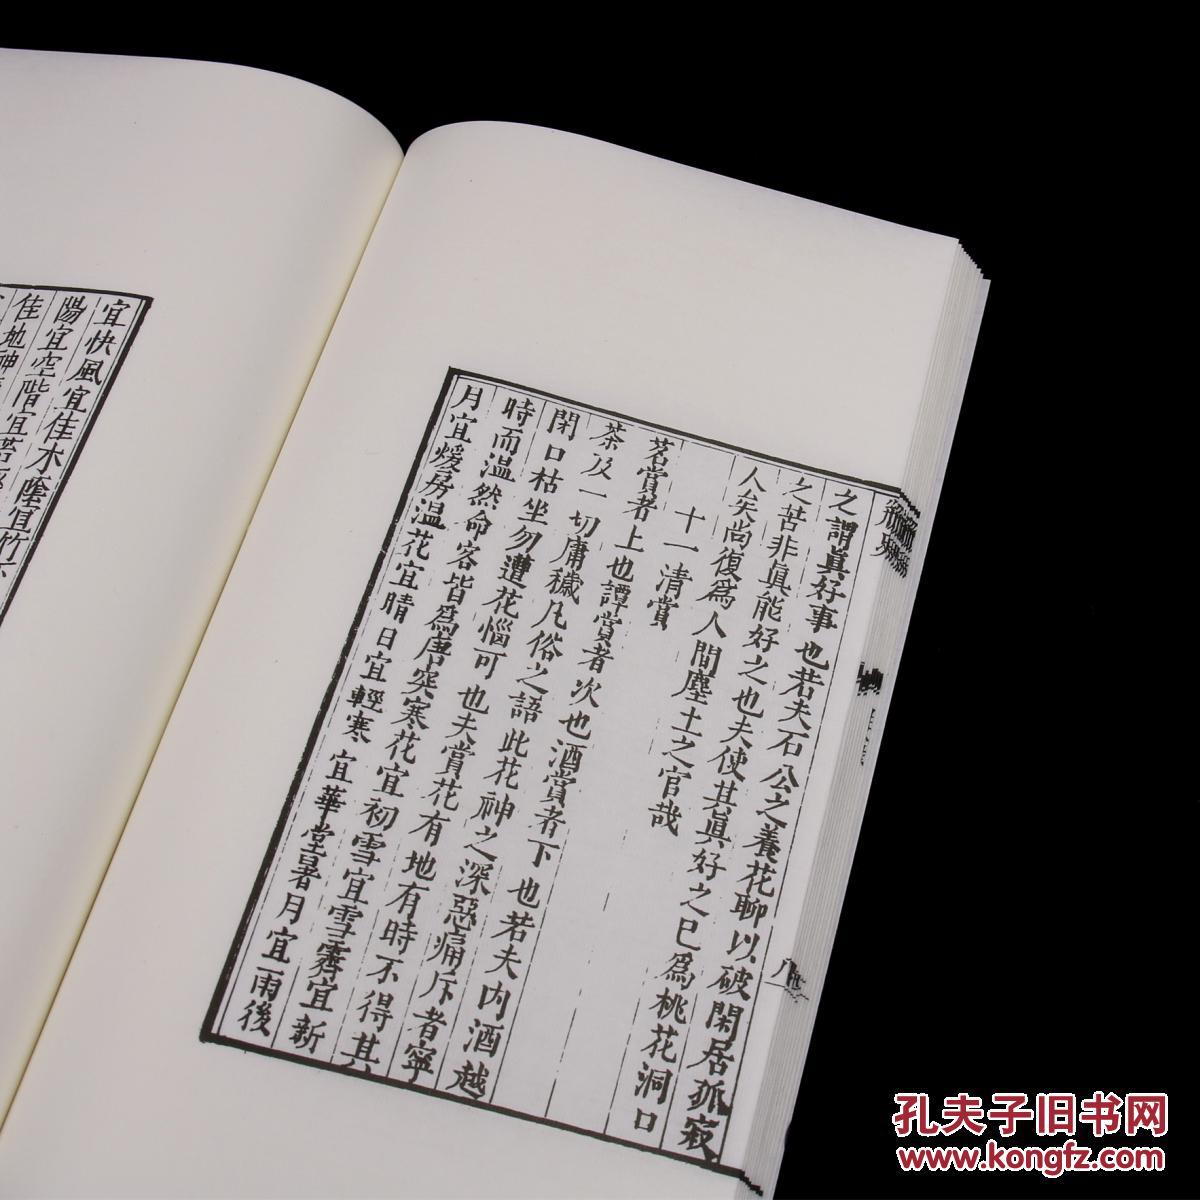 之謂眞好事也若夫石公之養花聊以破閑居孤寂
之苦非眞能好之也夫使其眞好之已爲桃花洞口
人矣尚復爲人間塵土之官哉
十一清賞
茗賞者上也譚賞者次也酒賞者下也若夫内酒越
茶及一切庸穢凡俗之語此花神之深惡痛斥者寧
閉口枯坐勿遭花惱可也夫賞花有地有時不得其
時而温然命客皆爲唐突寒花宜初雪宜雪霽宜新
月宜煖房温花宜晴日宜輕寒宜華堂暑月宜雨後
宜快風宜佳木蔭宜竹
陽宜空階宜苔
佳地神
孔夫子旧书网
www.kongfz.com